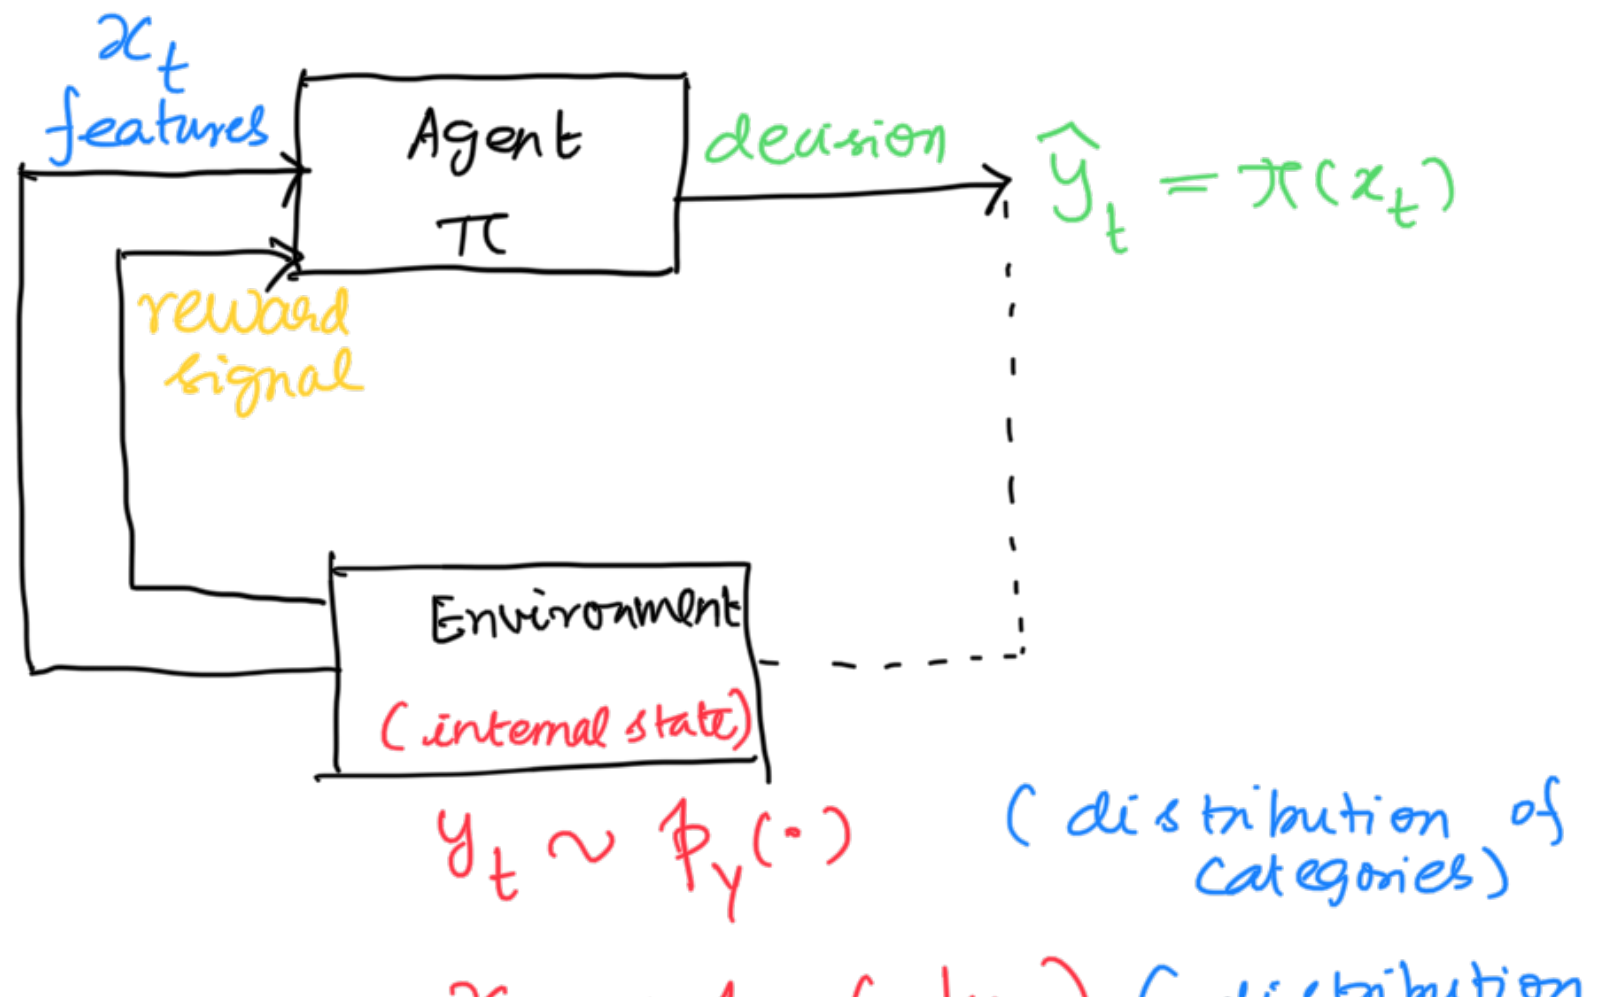 x_t
features
Agent
π
decision
ŷ_t = π(x_t)
reward
signal
Environment
(internal state)
y_t ~ p_y(·)
(distribution of
categories)
(distribution